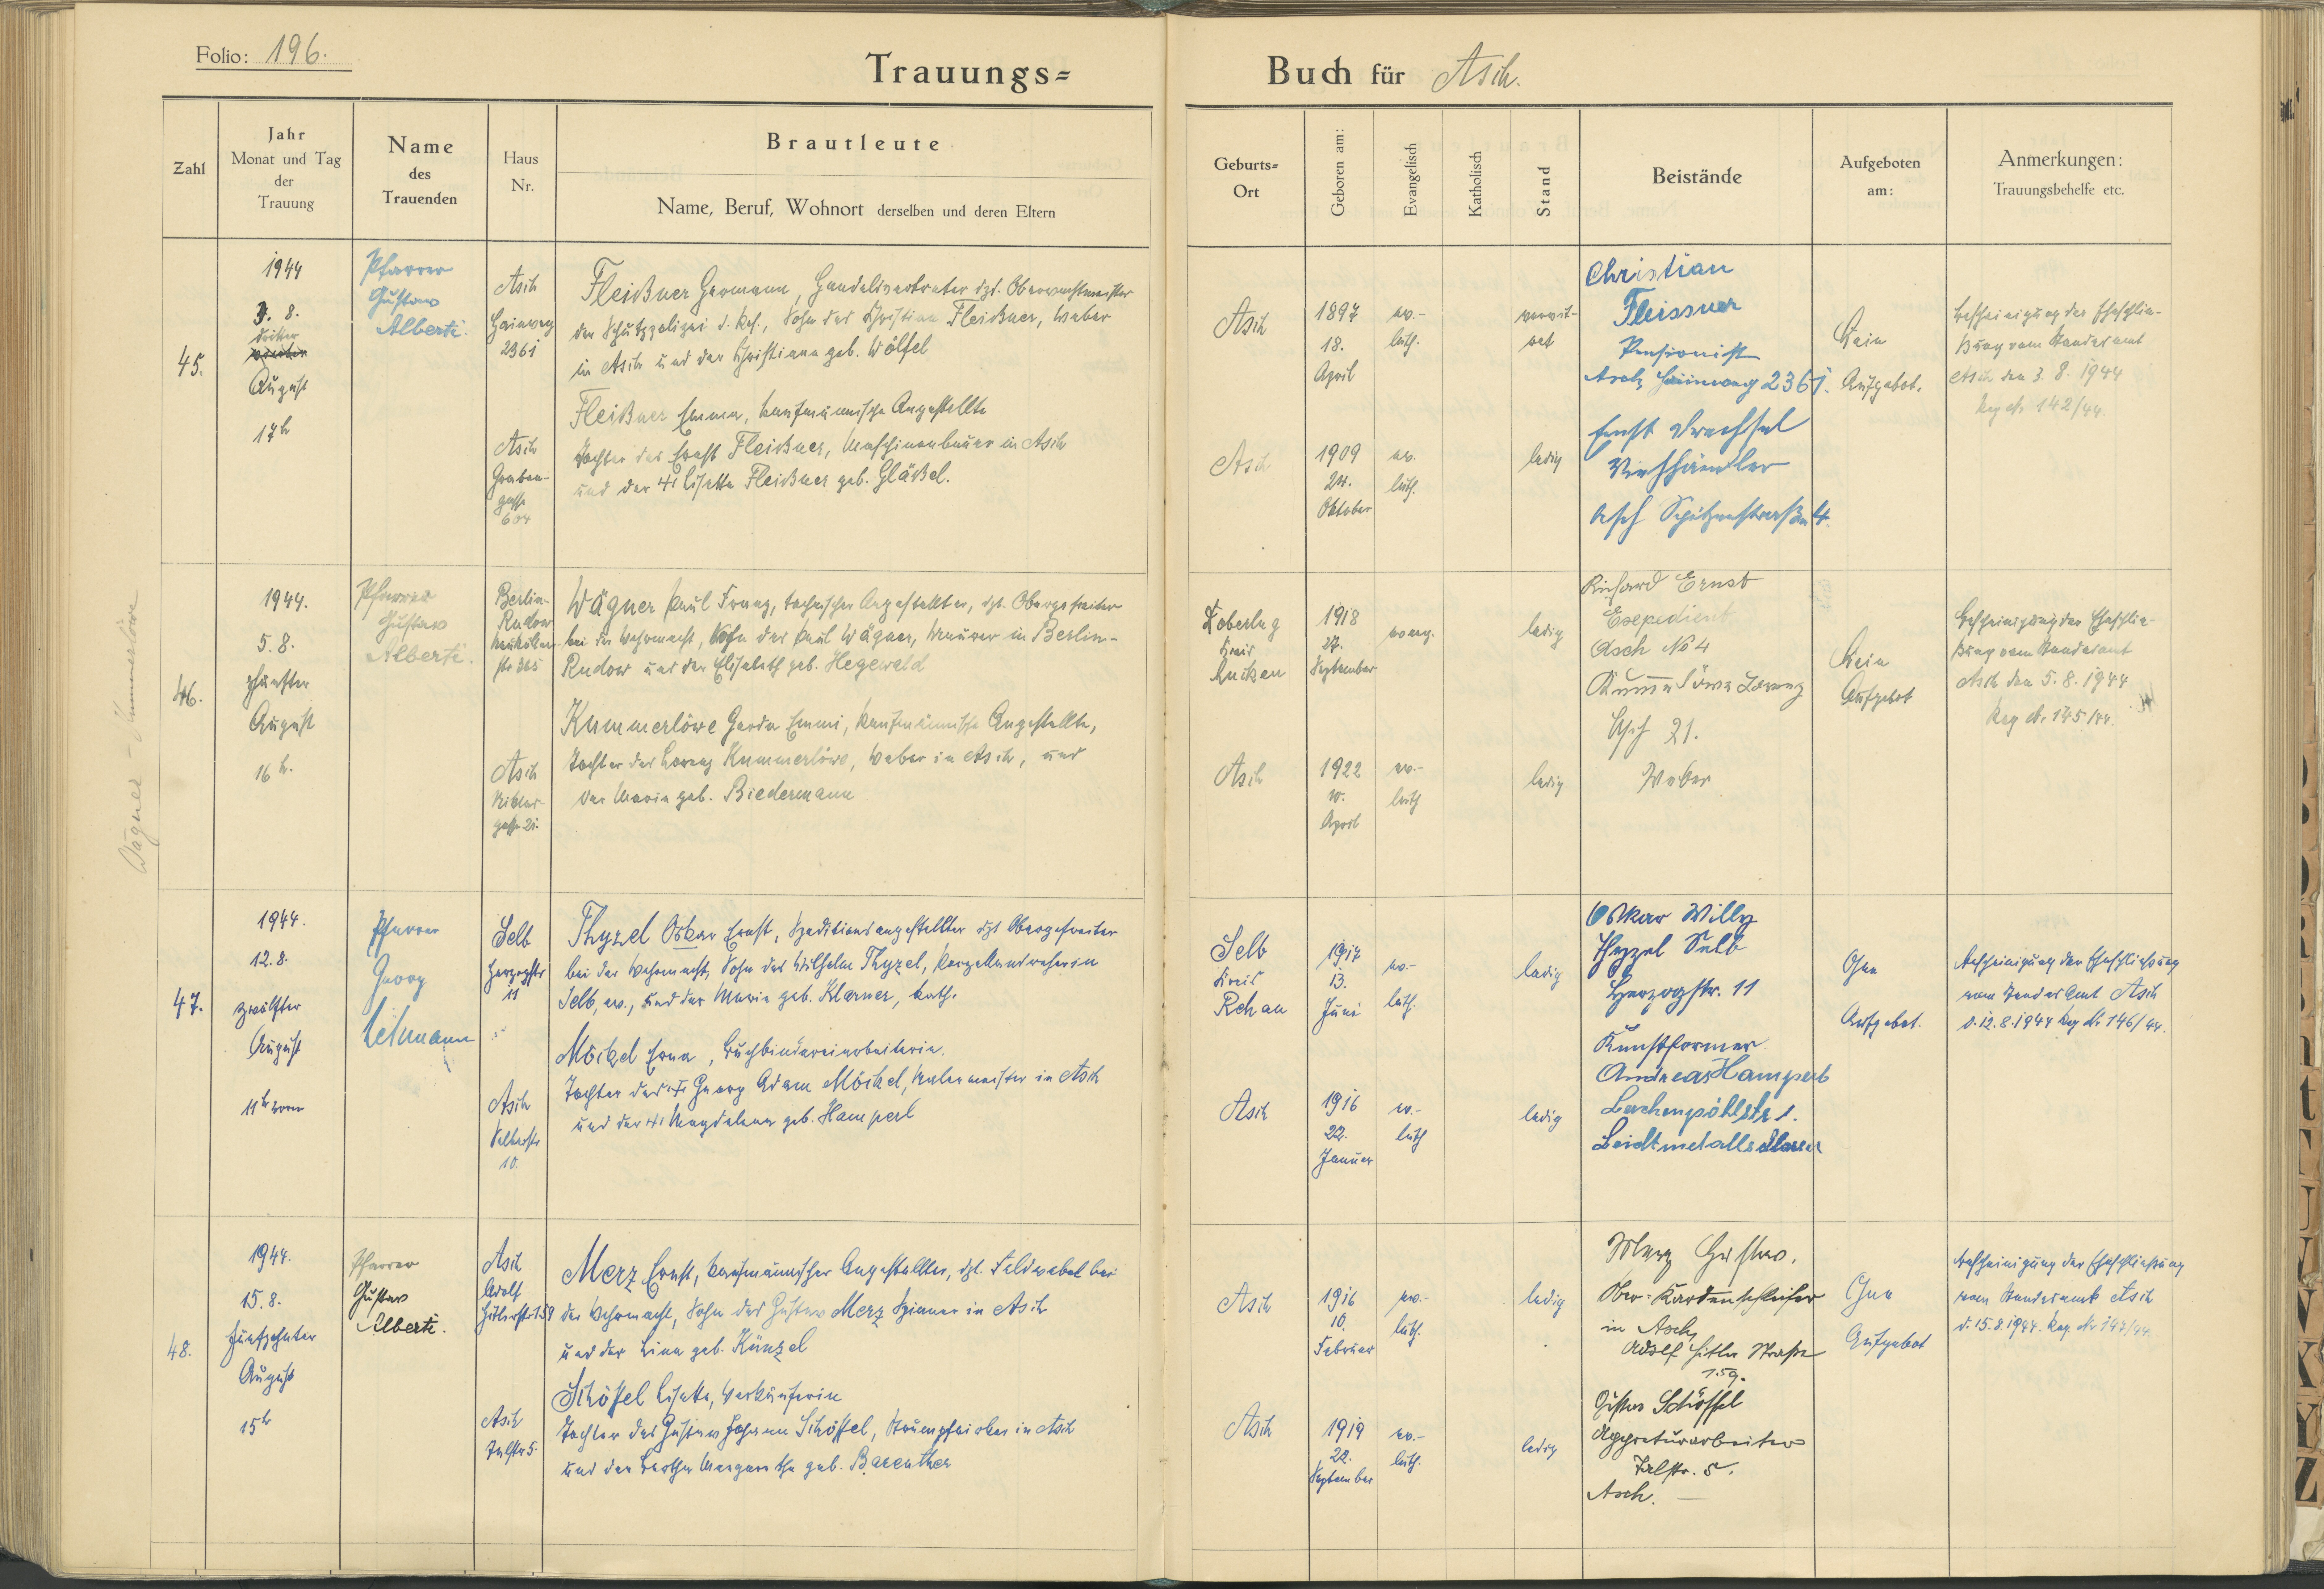 Folio: 196.
Trauungs=
Buch für Asch.
Zahl
Jahr
Monat und Tag
der
Trauung
Name
des
Trauenden
Haus
Nr.
Brautleute
Name, Beruf, Wohnort derselben und deren Eltern
Geburts=
Ort
Geboren am:
Evangelisch
Katholisch
Stand
Beistände
Aufgeboten
am:
Anmerkungen:
Trauungsbehelfe etc.
45.
1944
3. 8.
dritter
August
17h
Pfarrer
Gustav
Alberti.
Asch
Hainweg
2361
Fleißner Hermann, Handelsvertreter dzt. Oberwachtmeister
der Schutzpolizei d. Res., Sohn des Christian Fleißner, Weber
in Asch und der Christiana geb. Wölfel
Asch
Graben-
gasse
604
Fleißner Emma, kaufmännische Angestellte
Tochter des Ernst Fleißner, Maschinenbauer in Asch
und der Lisette Fleißner geb. Gläßel.
Asch
1897
18.
April
ev.-
luth.
verwit-
wet
Asch
1909
24.
Oktober
ev.
luth.
ledig
Christian
Fleissner
Pensionist
Asch Hainweg 2361.
Ernst Drechsel
Viehhändler
Asch Schützenstraße 4.
Kein
Aufgebot.
Bescheinigung der Eheschlie-
ßung vom Standesamt
Asch den 3. 8. 1944
Reg. Nr. 142/44.
Wagner - Kummerlöwe
46.
1944.
5. 8.
fünfter
August
16 h.
Pfarrer
Gustav
Alberti.
Berlin-
Rudow
Neuköllner-
str. 365
Wägner Paul Franz, technischer Angestellter, dzt. Obergefreiter
bei der Wehrmacht, Sohn des Paul Wägner, Maurer in Berlin-
Rudow und der Elisabeth geb. Hegewald
Asch
gasse 21.
Kummerlöwe Gerda Emmi, kaufmännische Angestellte,
Tochter des Lorenz Kummerlöwe, Weber in Asch, und
der Maria geb. Biedermann
Kreis
Luckau
1918
27.
September
evang.
ledig
Asch
1922
10.
April
ev.-
luth
ledig
Richard Ernst
Expedient
Asch No 4
Kummerlöwe Lorenz
Asch 21.
Weber
Kein
Aufgebot
Bescheinigung der Eheschlie-
ßung vom Standesamt
Asch den 5. 8. 1944
Reg. Nr. 145/44.
47.
1944.
12. 8.
zwölfter
August
11 h vorm
Pfarrer
Georg
Lehmann
Selb
Herzogstr
11
Thyzel Oskar Ernst, Speditionsangestellter dzt Obergefreiter
bei der Wehrmacht, Sohn des Wilhelm Thyzel, Porzellandreher in
Selb, ev., und der Maria geb. Klarner, kath.
Asch
Selberstr
10.
Möckel Erna, Buchbindereiarbeiterin.
Tochter des Georg Adam Möckel, Malermeister in Asch
und der Magdalena geb. Hamperl
Selb
Kreis
Rehau
1917
13.
Juni
ev.-
luth.
ledig
Asch
1916
22.
Januar
ev.-
luth
ledig
Oskar Willy
Thyzel Selb
Herzogstr. 11
Kunstformer
Andreas Hamperl
Lerchenpöhlstr 1.
Ohne
Aufgebot.
Bescheinigung der Eheschließung
vom Standes Amt Asch
d. 12. 8. 1944 Reg Nr 146/44.
48.
1944.
15. 8.
fünfzehnter
August
15h
Pfarrer
Gustav
Alberti.
Asch
Adolf
Hitlerstr 159
Merz Ernst, kaufmännischer Angestellter, dzt. Feldwebel bei
der Wehrmacht, Sohn des Gustav Merz Spinner in Asch
und der Lina geb. Künzel
Asch
Schöffel Lisette, Verkäuferin
Tochter des Gustav Johann Schöffel, Strumpfwirker in Asch
und der Bertha Margaretha geb. Bareuther
Asch
1916
10.
Februar
ev.-
luth.
ledig
Asch
1919
22.
September
ev.-
luth.
ledig
Merz Gustav.
Ober-Kardenschleifer
in Asch,
Adolf Hitler Straße
159.
Gustav Schöffel
Appreturarbeiter
Asch.
Ohne
Aufgebot
Bescheinigung der Eheschließung
vom Standesamt Asch
d. 15. 8. 1944. Reg. Nr 147/44.